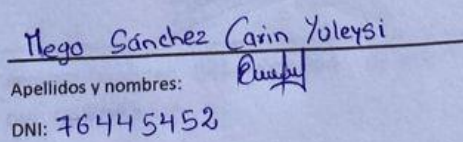 Mego Sánchez Carin Yuleysi
Apellidos y nombres:
DNI: 76445452